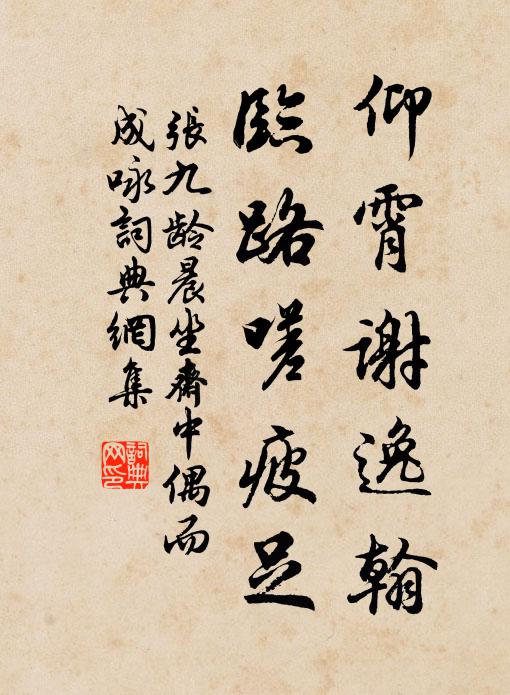 仰霄谢逸翰
临路嗟疲足
張九龄晨坐齋中偶而
成咏詞典網集
詞典
网印